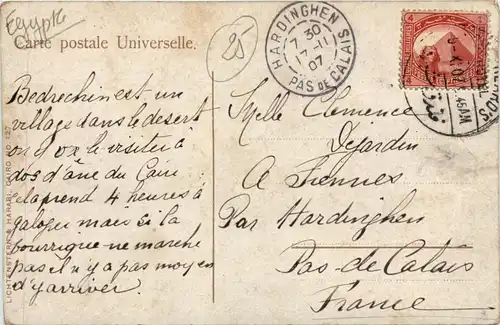 Egypte
Carte postale Universelle.
25
HARDINGHEN
7 30
17-11
07
PAS DE CALAIS
Bedrechin est un
village dans le desert
on y va le visiter à
dos d'âne du Caire
cela prend 4 heures à
galoper mais si la
bourrique ne marche
pas il n'y a pas moyen
d'y arriver.
Mlle Clémence
Dejardin
A Fiennes
Par Hardinghen
Pas-de-Calais
France
LICHTENSTERN & HARARI, CAIRO NO. 127